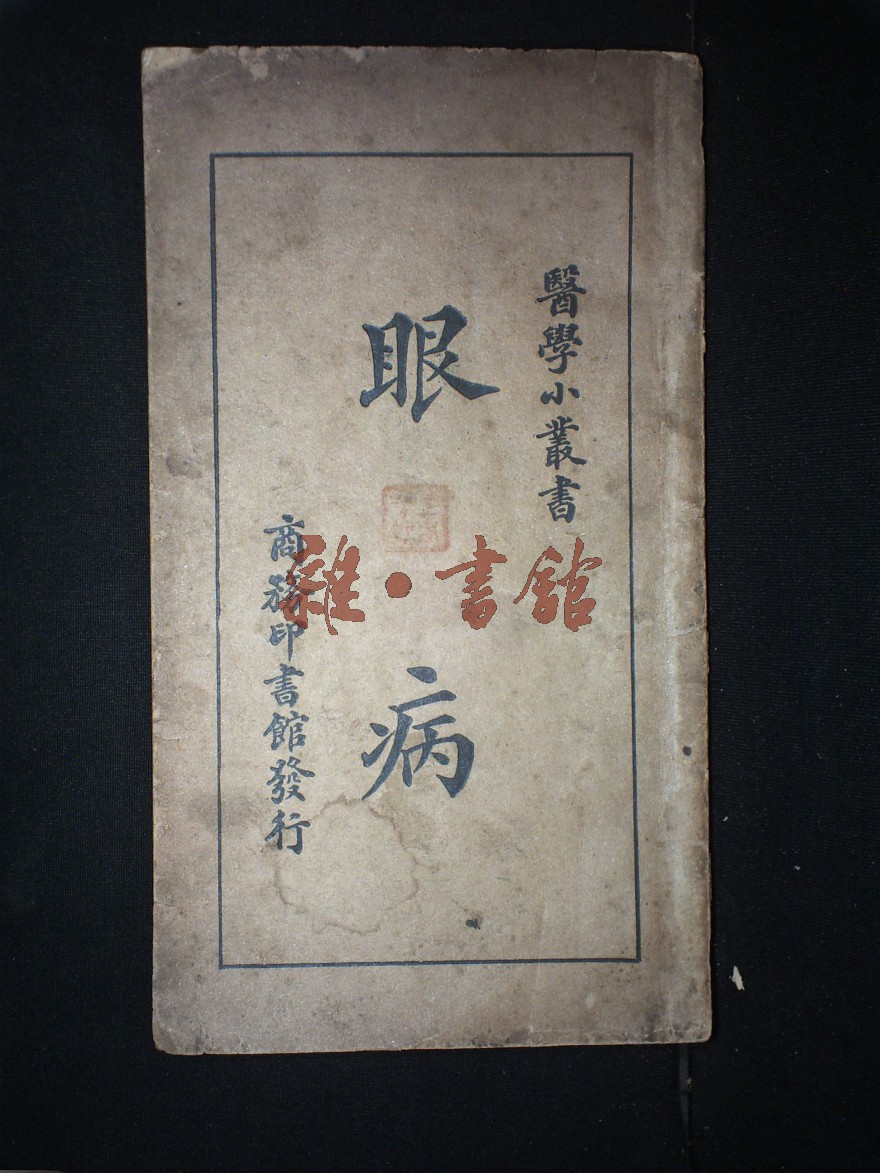 醫學小叢書
眼病
商務印書館發行
雜·書館